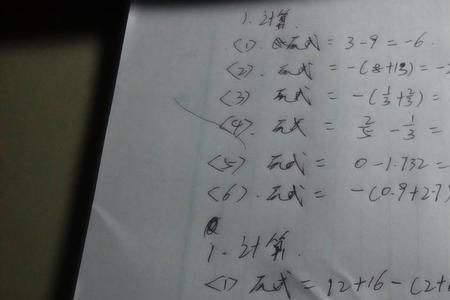 1. 计算.
<1>. 原式 = 3-9 = -6.
<2>. 原式 = -(8+13) = -2
<3> 原式 = -(1/3+2/3) =
<4>. 原式 2/5 - 1/3 =
<5> 原式 = 0-1.732 =
<6>. 原式 = -(0.9+2.7)
1. 计算.
<1> 原式 = 12+16-(2+